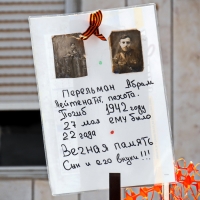 Перельман Абрам
Лейтенант, пехота.
Погиб 1942 году
27 мая ему было
22 года
Вечная память
Сын и его внуки!!!